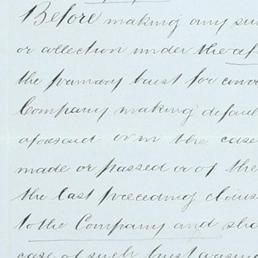 Before making any su
or collection under the af
the primary trust for conv
Company making defaul
aforesaid or in the case
made or passed or of the
the last preceding claus
to the Company and sh
case of such trust